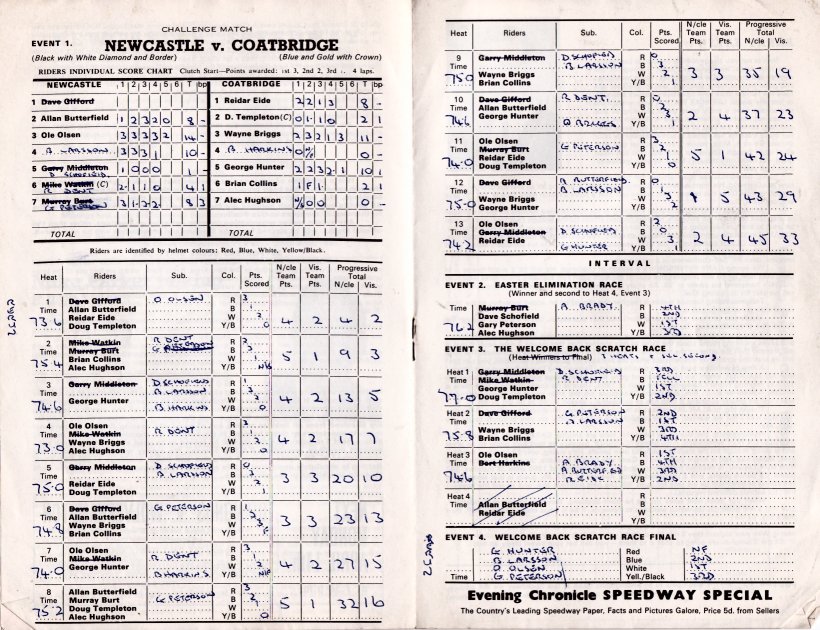 CHALLENGE MATCH
EVENT 1. NEWCASTLE v. COATBRIDGE
(Black with White Diamond and Border) (Blue and Gold with Crown)
RIDERS INDIVIDUAL SCORE CHART Clutch Start—Points awarded: 1st 3, 2nd 2, 3rd 1. 4 laps.
NEWCASTLE 1 2 3 4 5 6 T bp COATBRIDGE 1 2 3 4 5 6 T bp
1 Dave Gifford 1 Reidar Eide 2 2 1 3 8 -
2 Allan Butterfield 1 2 3 2 0 8 - 2 D. Templeton (C) 0 1 1 0 2 1
3 Ole Olsen 3 3 3 3 2 14 - 3 Wayne Briggs 2 3 2 1 3 11 -
4 B. LARSSON 3 3 3 1 10 - 4 B. HARKINS 0 N/F 0 -
5 Garry Middleton 1 0 0 0 1 - 5 George Hunter 2 2 3 2 1 10 1
D. SCHOFIELD
6 Mike Watkin (C) 2 1 1 0 4 1 6 Brian Collins 1 F 1 2 1
R DENT
7 Murray Burt 3 1 2 2 8 3 7 Alec Hughson N/F 0 0 0 -
G PETERSON
TOTAL TOTAL
Riders are identified by helmet colours: Red, Blue, White, Yellow/Black.
Heat Riders Sub. Col. Pts. Scored N/cle Team Pts. Vis. Team Pts. Progressive Total N/cle Vis.
1 Dave Gifford O. OLSEN R 3
Time Allan Butterfield B 1
73.6 Reidar Eide W 2 4 2 4 2
Doug Templeton Y/B 0
2 Mike Watkin R DENT R 2
Time Murray Burt G PETERSON B 3
75.4 Brian Collins W 1 5 1 9 3
Alec Hughson Y/B N/F
3 Garry Middleton D SCHOFIELD R 1
Time B LARSSON B 3
74.6 George Hunter W 2 4 2 13 5
B HARKINS Y/B 0
4 Ole Olsen R 3
Time Mike Watkin R DENT B 1
73.0 Wayne Briggs W 2 4 2 17 7
Alec Hughson Y/B 0
5 Garry Middleton D SCHOFIELD R 0
Time B LARSSON B 3
75.0 Reidar Eide W 2 3 3 20 10
Doug Templeton Y/B 1
6 Dave Gifford G PETERSON R 1
Time Allan Butterfield B 2
74.8 Wayne Briggs W 3 3 3 23 13
Brian Collins Y/B F
7 Ole Olsen R 3
Time Mike Watkin R DENT B 1
74.0 George Hunter W 2 4 2 27 15
B HARKINS Y/B N/F
8 Allan Butterfield R 3
Time Murray Burt G PETERSON B 2
75.2 Doug Templeton W 1 5 1 32 16
Alec Hughson Y/B 0
Heat Riders Sub. Col. Pts. Scored N/cle Team Pts. Vis. Team Pts. Progressive Total N/cle Vis.
9 Garry Middleton D SCHOFIELD R 0
Time B LARSSON B 3
75.0 Wayne Briggs W 2 3 3 35 19
Brian Collins Y/B 1
10 Dave Gifford R DENT. R 0
Time Allan Butterfield B 2
74.6 George Hunter W 3 2 4 37 23
Y/B 1
11 Ole Olsen R 3
Time Murray Burt G PETERSON B 2
74.0 Reidar Eide W 1 5 1 42 24
Doug Templeton Y/B 0
12 Dave Gifford A BUTTERFIELD R 0
Time B LARSSON B 1
75.0 Wayne Briggs W 3 1 5 43 29
George Hunter Y/B 2
13 Ole Olsen R 2
Time Garry Middleton D SCHOFIELD B 0
74.2 Reidar Eide W 3 2 4 45 33
G HUNTER Y/B 1
INTERVAL
EVENT 2. EASTER ELIMINATION RACE
(Winner and second to Heat 4, Event 3)
Murray Burt A. BRADY R 4TH
Time Dave Schofield B 2ND
76.2 Gary Peterson W 1ST
Alec Hughson Y/B 3RD
EVENT 3. THE WELCOME BACK SCRATCH RACE
(Heat Winners to Final)
Heat 1 Garry Middleton D SCHOFIELD R 3RD
Time Mike Watkin R DENT B FELL
77.0 George Hunter W 1ST
Doug Templeton Y/B 2ND
Heat 2 Dave Gifford G PETERSON R 2ND
Time B LARSSON B 1ST
75.8 Wayne Briggs W 3RD
Brian Collins Y/B 4TH
Heat 3 Ole Olsen R 1ST
Time Bert Harkins A BRADY B 4TH
74.6 A BUTTERFIELD W 3RD
R EIDE Y/B 2ND
Heat 4 R
Time Allan Butterfield B
Reidar Eide W
Y/B
EVENT 4. WELCOME BACK SCRATCH RACE FINAL
G. HUNTER Red NF
B. LARSSON Blue 2ND
O. OLSEN White 1ST
Time G PETERSON Yell./Black 3RD
Evening Chronicle SPEEDWAY SPECIAL
The Country's Leading Speedway Paper, Facts and Pictures Galore, Price 5d. from Sellers